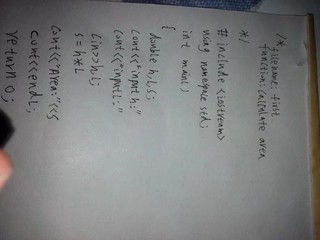 /* filename: first
function: calculate area
*/
# include <iostream>
using namespace std;
int main()
{
double h,l,s;
cout<<"input h:"
cout<<"input L:"
Cin>>h,l;
s=h*L
Cout<<"Area:"<<s
cout<<endL;
return 0;